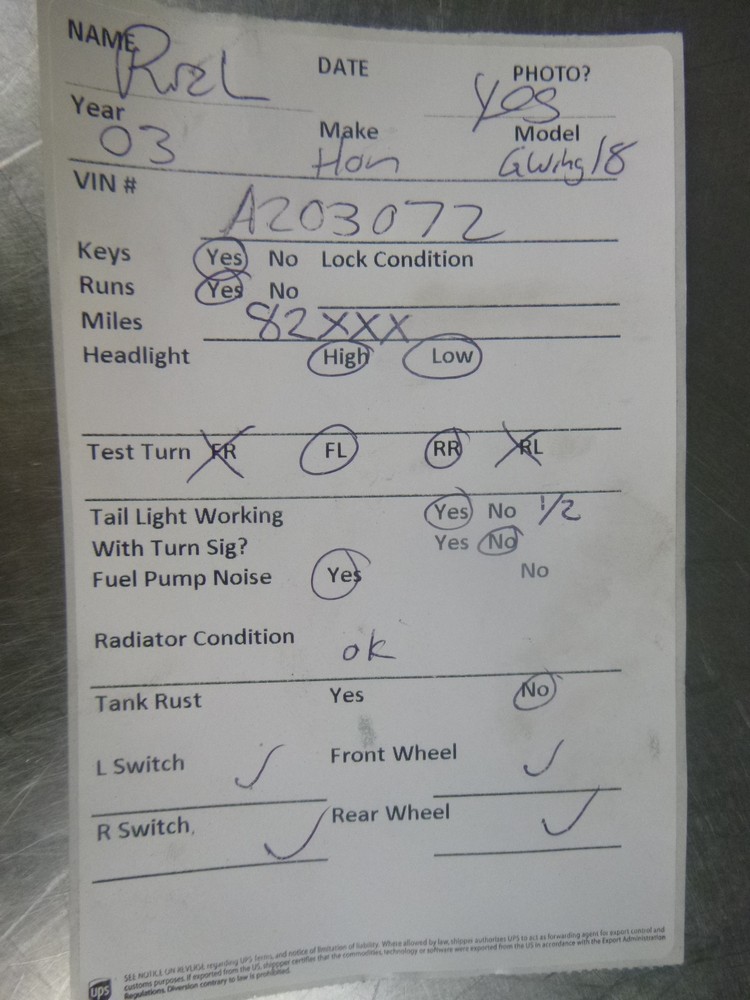 NAME RIEL DATE PHOTO? Yes
Year 03 Make Hon Model GWing 18
VIN # A203072
Keys Yes No Lock Condition
Runs Yes No
Miles 82XXX
Headlight High Low
Test Turn FR FL RR RL
Tail Light Working Yes No 1/2
With Turn Sig? Yes No
Fuel Pump Noise Yes No
Radiator Condition ok
Tank Rust Yes No
L Switch ✓ Front Wheel ✓
R Switch ✓ Rear Wheel ✓
SEE NOTICE ON REVERSE regarding UPS Terms, and notice of limitation of liability. Where allowed by law, shipper authorizes UPS to act as forwarding agent for export control and
customs purposes. If exported from the US, shipper certifies that the commodities, technology or software were exported from the US in accordance with the Export Administration
Regulations. Diversion contrary to law is prohibited.
ups